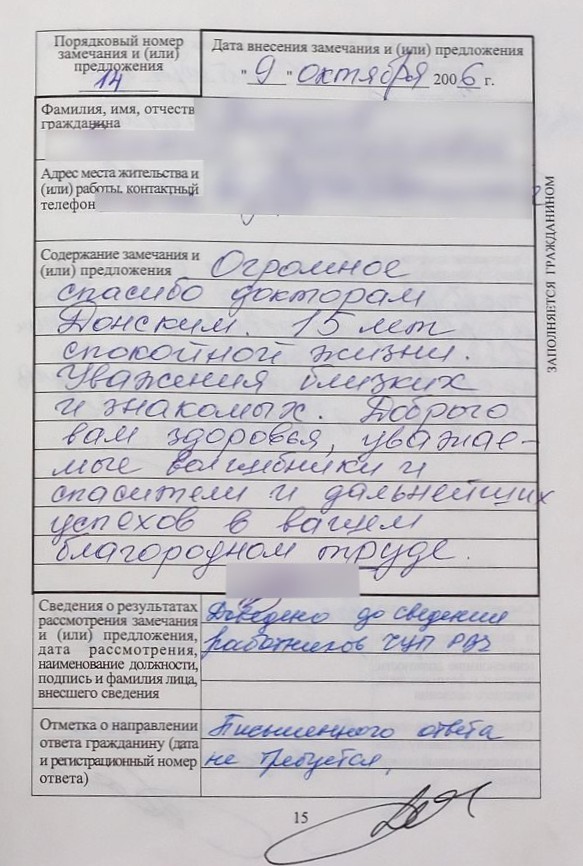 Порядковый номер
замечания и (или)
предложения
14
Дата внесения замечания и (или) предложения
" 9 " октября 2006 г.
Фамилия, имя, отчеств
гражданина
Адрес места жительства и
(или) работы, контактный
телефон
ЗАПОЛНЯЕТСЯ ГРАЖДАНИНОМ
Содержание замечания и
(или) предложения
Огромное
спасибо докторам
Донским. 15 лет
спокойной жизни.
Уважения близких
и знакомых. Доброго
вам здоровья, уважае-
мые волшебники и
спасители и дальнейших
успехов в вашем
благородном труде.
Сведения о результатах
рассмотрения замечания
и (или) предложения,
дата рассмотрения,
наименование должности,
подпись и фамилия лица,
внесшего сведения
Доведено до сведения
работников
Отметка о направлении
ответа гражданину (дата
и регистрационный номер
ответа)
Письменного ответа
не требуется,
15